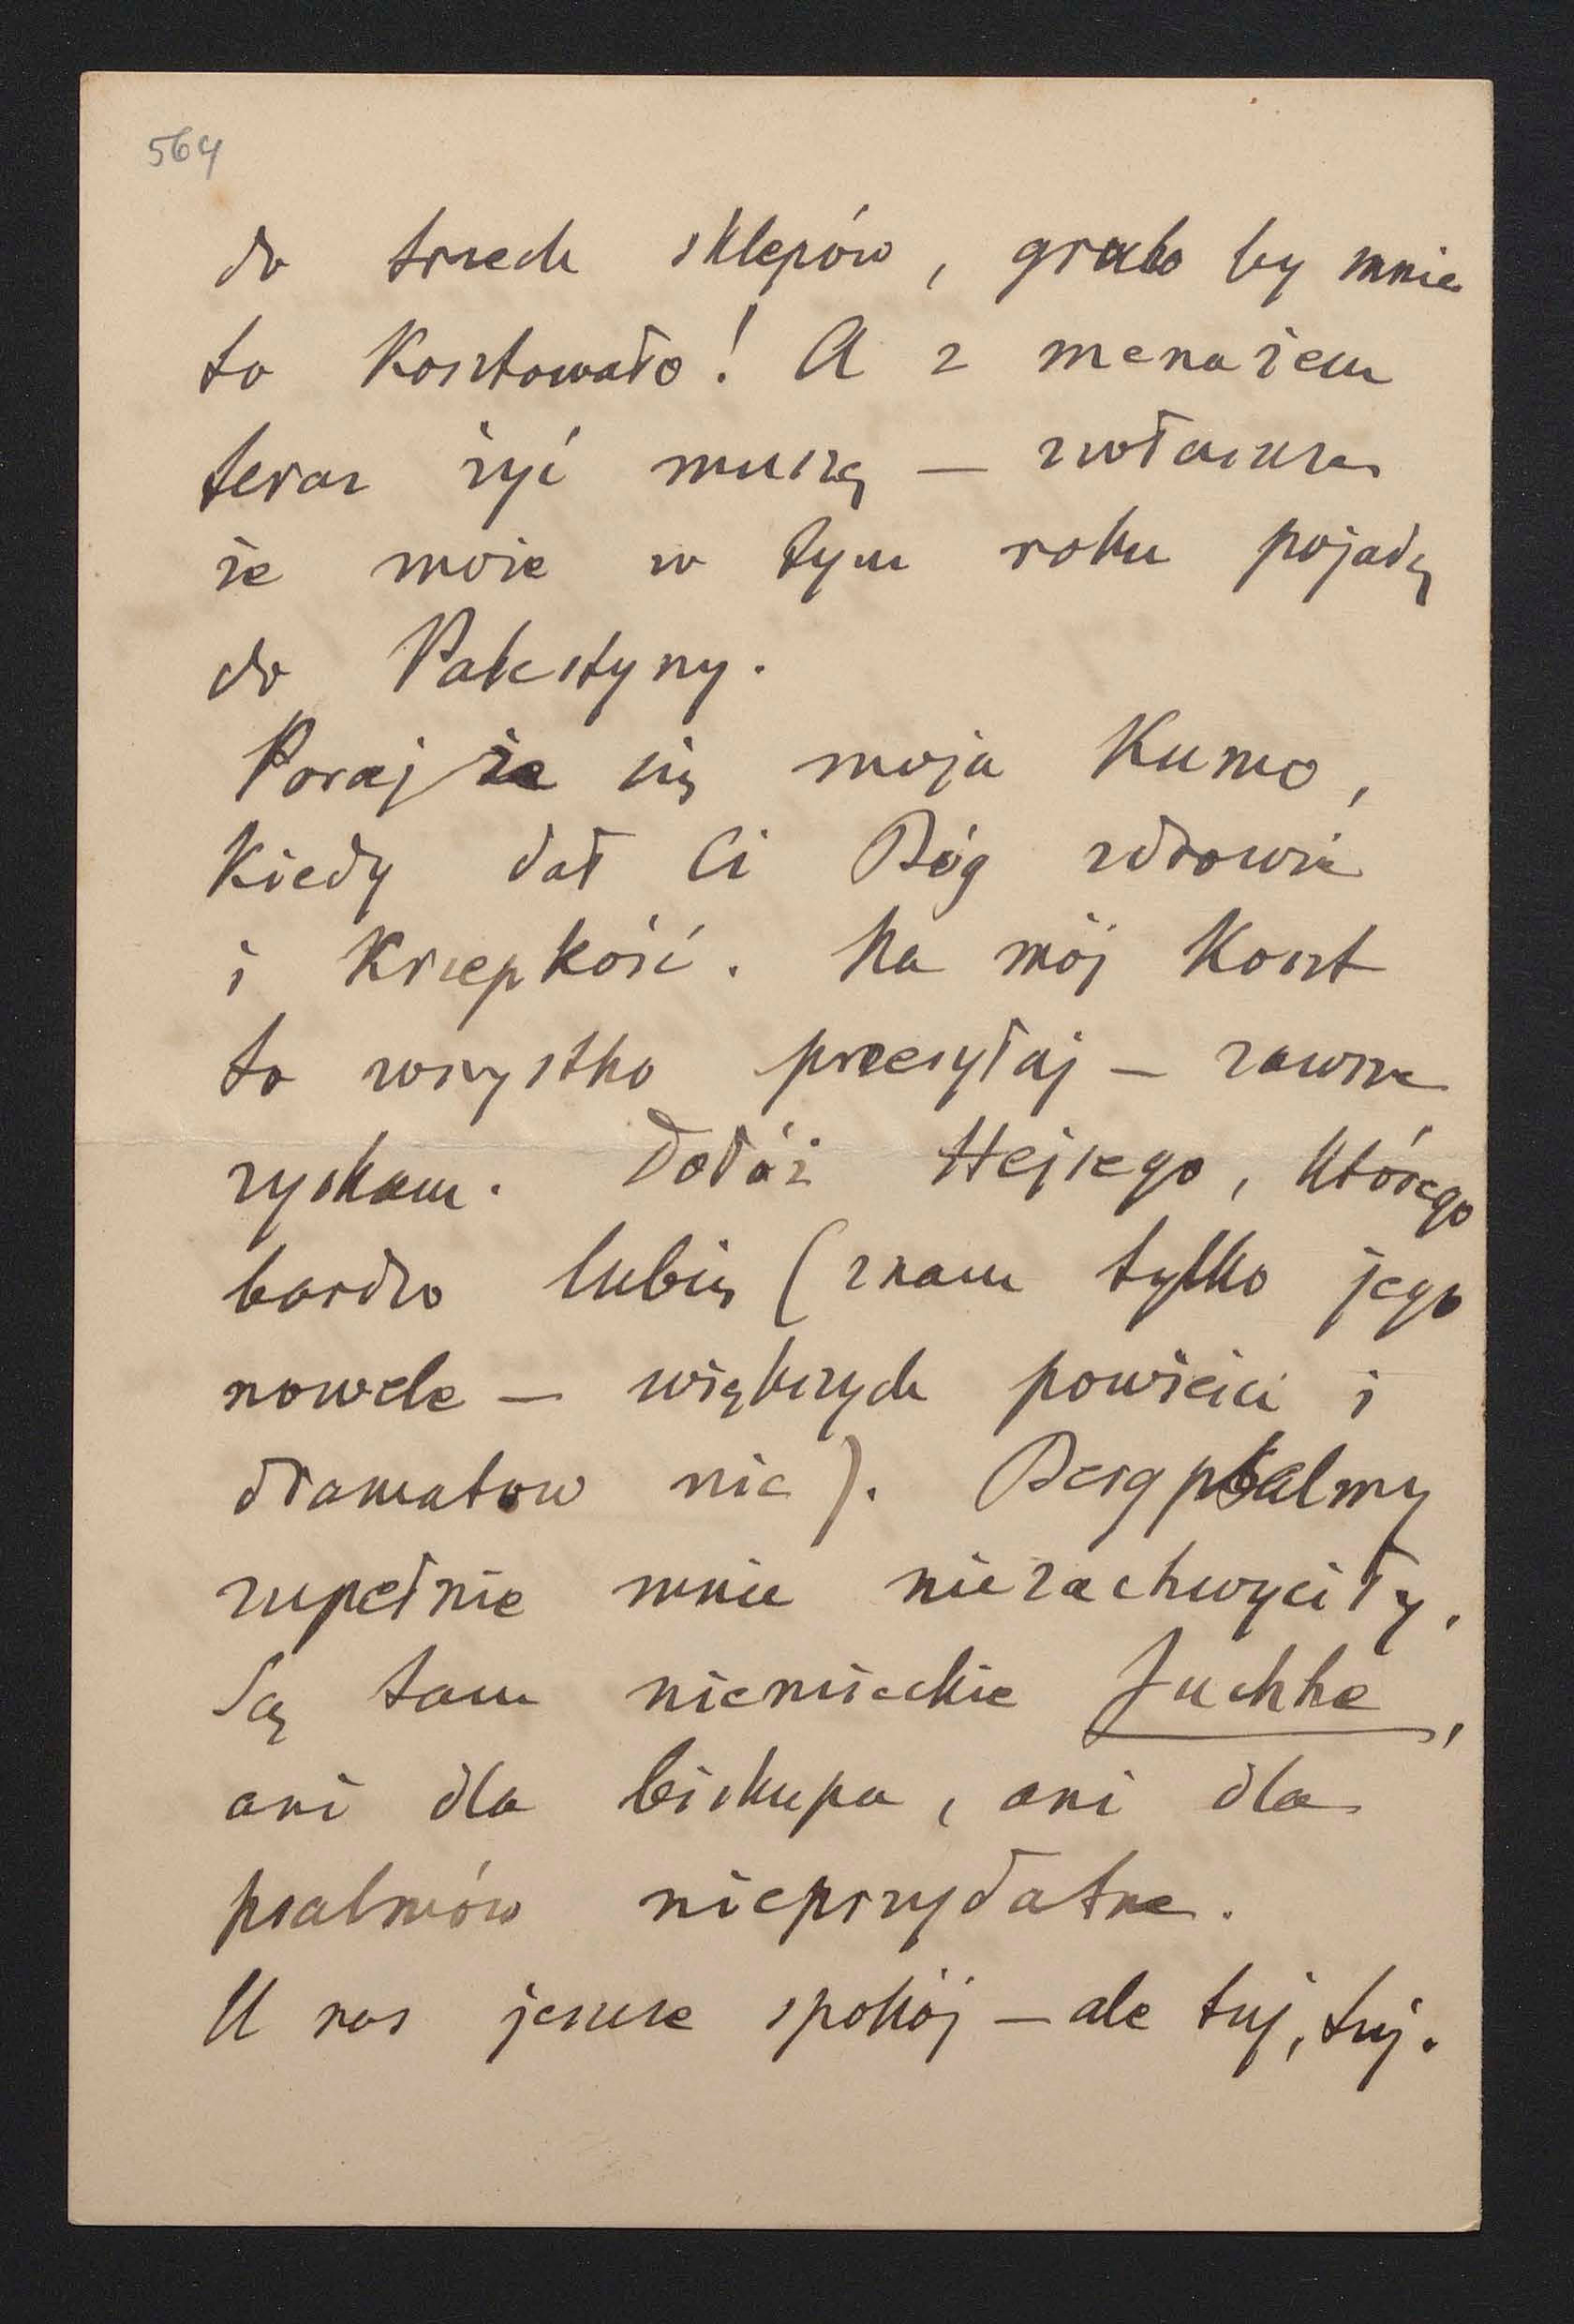 564
do trzech sklepów, grubo by mnie
to kosztowało! A z menażem
teraz żyć muszę — zwłaszcza
że może w tym roku pojadę
do Palestyny.
Porajże się moja Kumo,
kiedy dał Ci Bóg zdrowie
i krzepkość. Na mój koszt
to wszystko przesyłaj — zawsze
zyskam. Dołóż Hejsego, którego
bardzo lubię (znam tylko jego
nowele — większych powieści i
dramatow nie). Bergpsalmy
zupełnie mnie niezachwyciły.
Są tam niemieckie Juchhe,
ani dla biskupa, ani dla
psalmów nieprzydatne.
U nas jeszcze spokój — ale tuj, tuj.